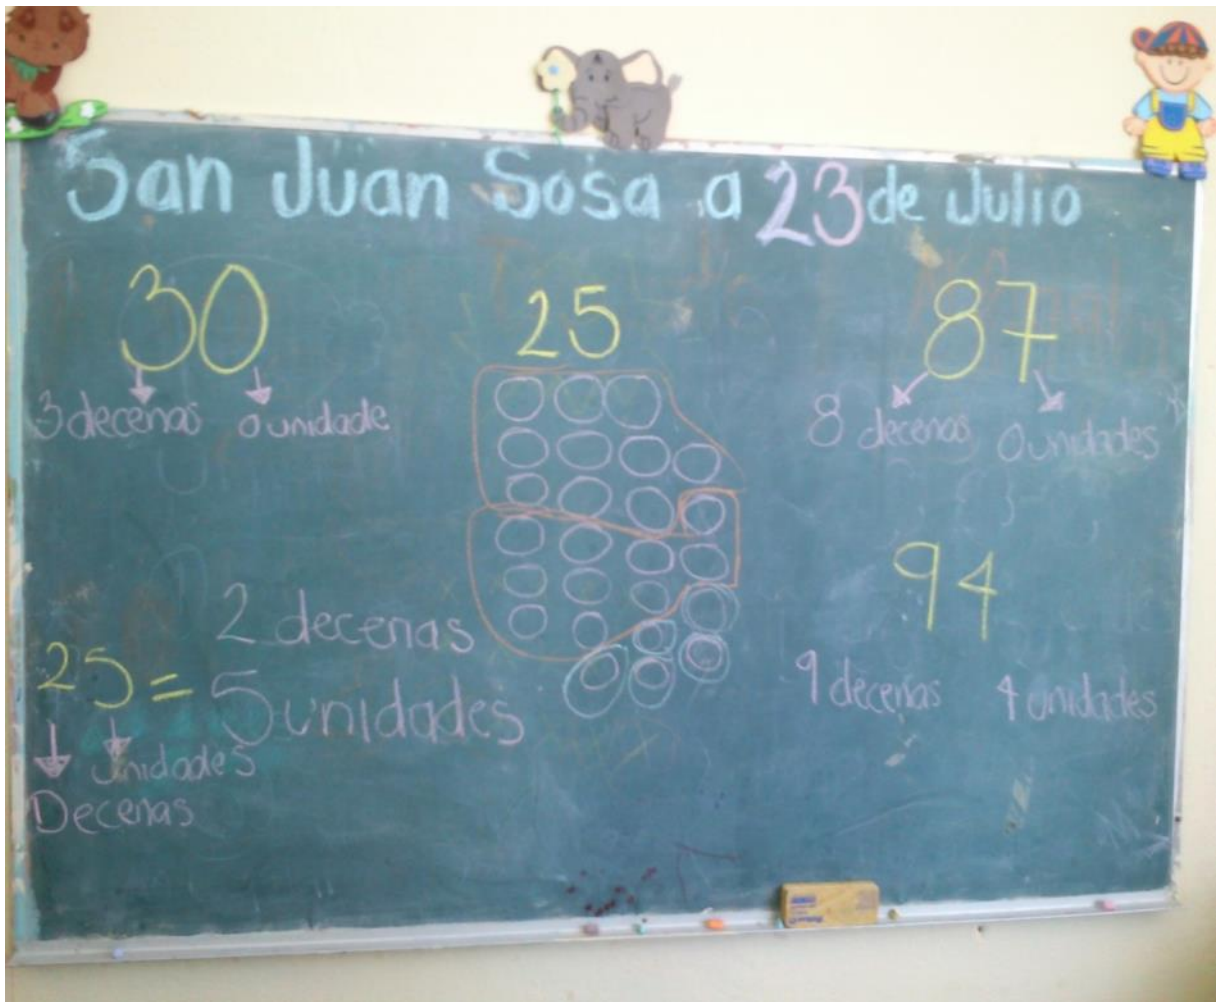 San Juan Sosa a 23 de Julio
30
3 decenas 0 unidade
25
87
8 decenas 0 unidades
94
9 decenas 4 unidades
25 = 2 decenas
5 unidades
unidades
Decenas